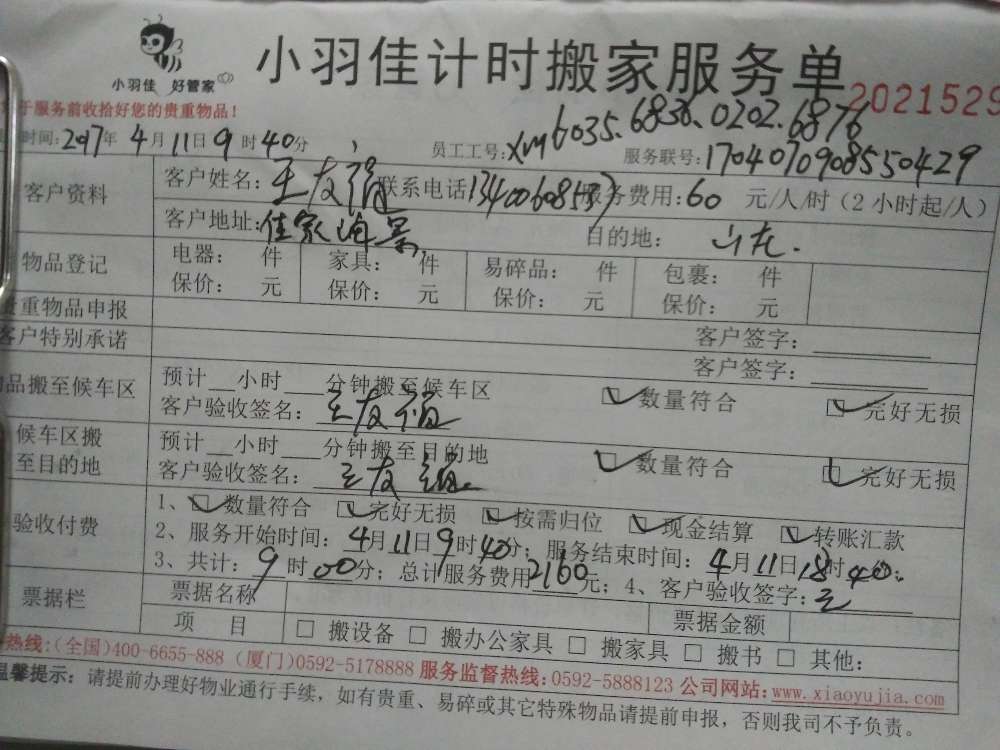 小羽佳 好管家
小羽佳计时搬家服务单
2021529
于服务前收拾好您的贵重物品！
时间：2017年4月11日9时40分
员工工号：xm6035.6836.0202.6876
服务联号：1704070908550429
客户资料
客户姓名：王友福 联系电话 服务费用：60 元/人/时（2小时起/人）
客户地址：佳家海景 目的地：
物品登记
电器： 件 家具： 件 易碎品： 件 包裹： 件
保价： 元 保价： 元 保价： 元 保价： 元
贵重物品申报 客户签字：
客户特别承诺 客户签字：
物品搬至候车区
预计__小时___分钟搬至候车区 数量符合 完好无损
客户验收签名：王友福
候车区搬至目的地
预计__小时___分钟搬至目的地 数量符合 完好无损
客户验收签名：王友福
验收付费
1、数量符合 完好无损 按需归位 现金结算 转账汇款
2、服务开始时间：4月11日9时40分；服务结束时间：4月11日18时40.
3、共计：9时00分；总计服务费用2160元；4、客户验收签字：王
票据栏
票据名称 票据金额
项 目 □ 搬设备 □ 搬办公家具 □ 搬家具 □ 搬书 □ 其他：
热线：（全国）400-6655-888（厦门）0592-5178888 服务监督热线：0592-5888123 公司网站：www.xiaoyujia.com
温馨提示：请提前办理好物业通行手续，如有贵重、易碎或其它特殊物品请提前申报，否则我司不予负责。